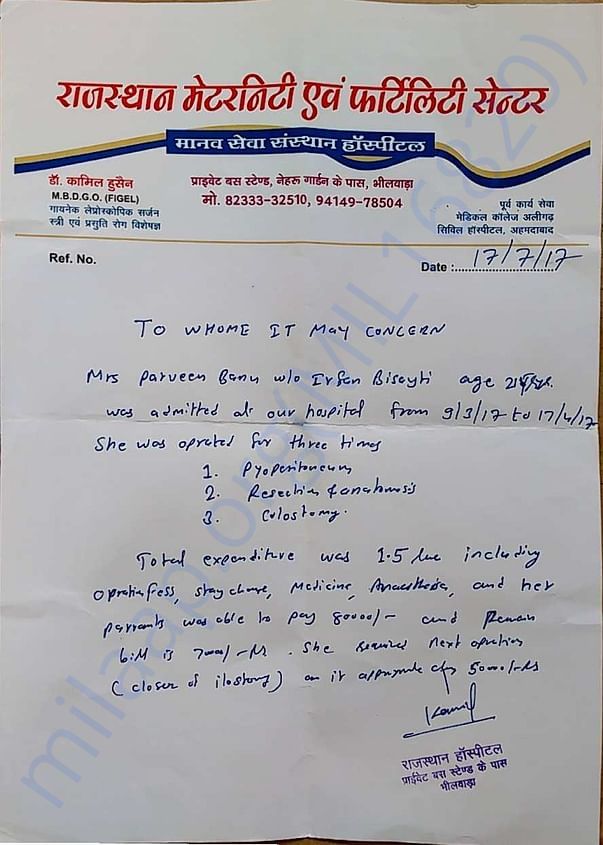 राजस्थान मेटरनिटी एवं फर्टिलिटी सेन्टर
मानव सेवा संस्थान हॉस्पीटल
डॉ. कामिल हुसैन
M.B.D.G.O. (FIGEL)
गायनेक लेप्रोस्कोपिक सर्जन
स्त्री एवं प्रसुति रोग विशेषज्ञ
प्राइवेट बस स्टेण्ड, नेहरू गार्डन के पास, भीलवाड़ा
मो. 82333-32510, 94149-78504
पूर्व कार्य सेवा
मेडिकल कॉलेज अलीगढ़
सिविल हॉस्पीटल, अहमदाबाद
Ref. No.
Date : 17/7/17
TO WHOME IT MAY CONCERN
Mrs Parveen Banu w/o Irfan age
was admitted at our hospital from 9/3/17 to 17/4/17
She was oprated for three times
1. Pyoperitoneum
2. Resection &
3. Colostomy.
Total expenditure was 1.5 including
stay Medicine, and her
parrants was able to pay 80000/- and Remain
bill is She required next opration
(closer of
राजस्थान हॉस्पीटल
प्राईवेट बस स्टेण्ड के पास
भीलवाड़ा
milaap.org(MIL16820)